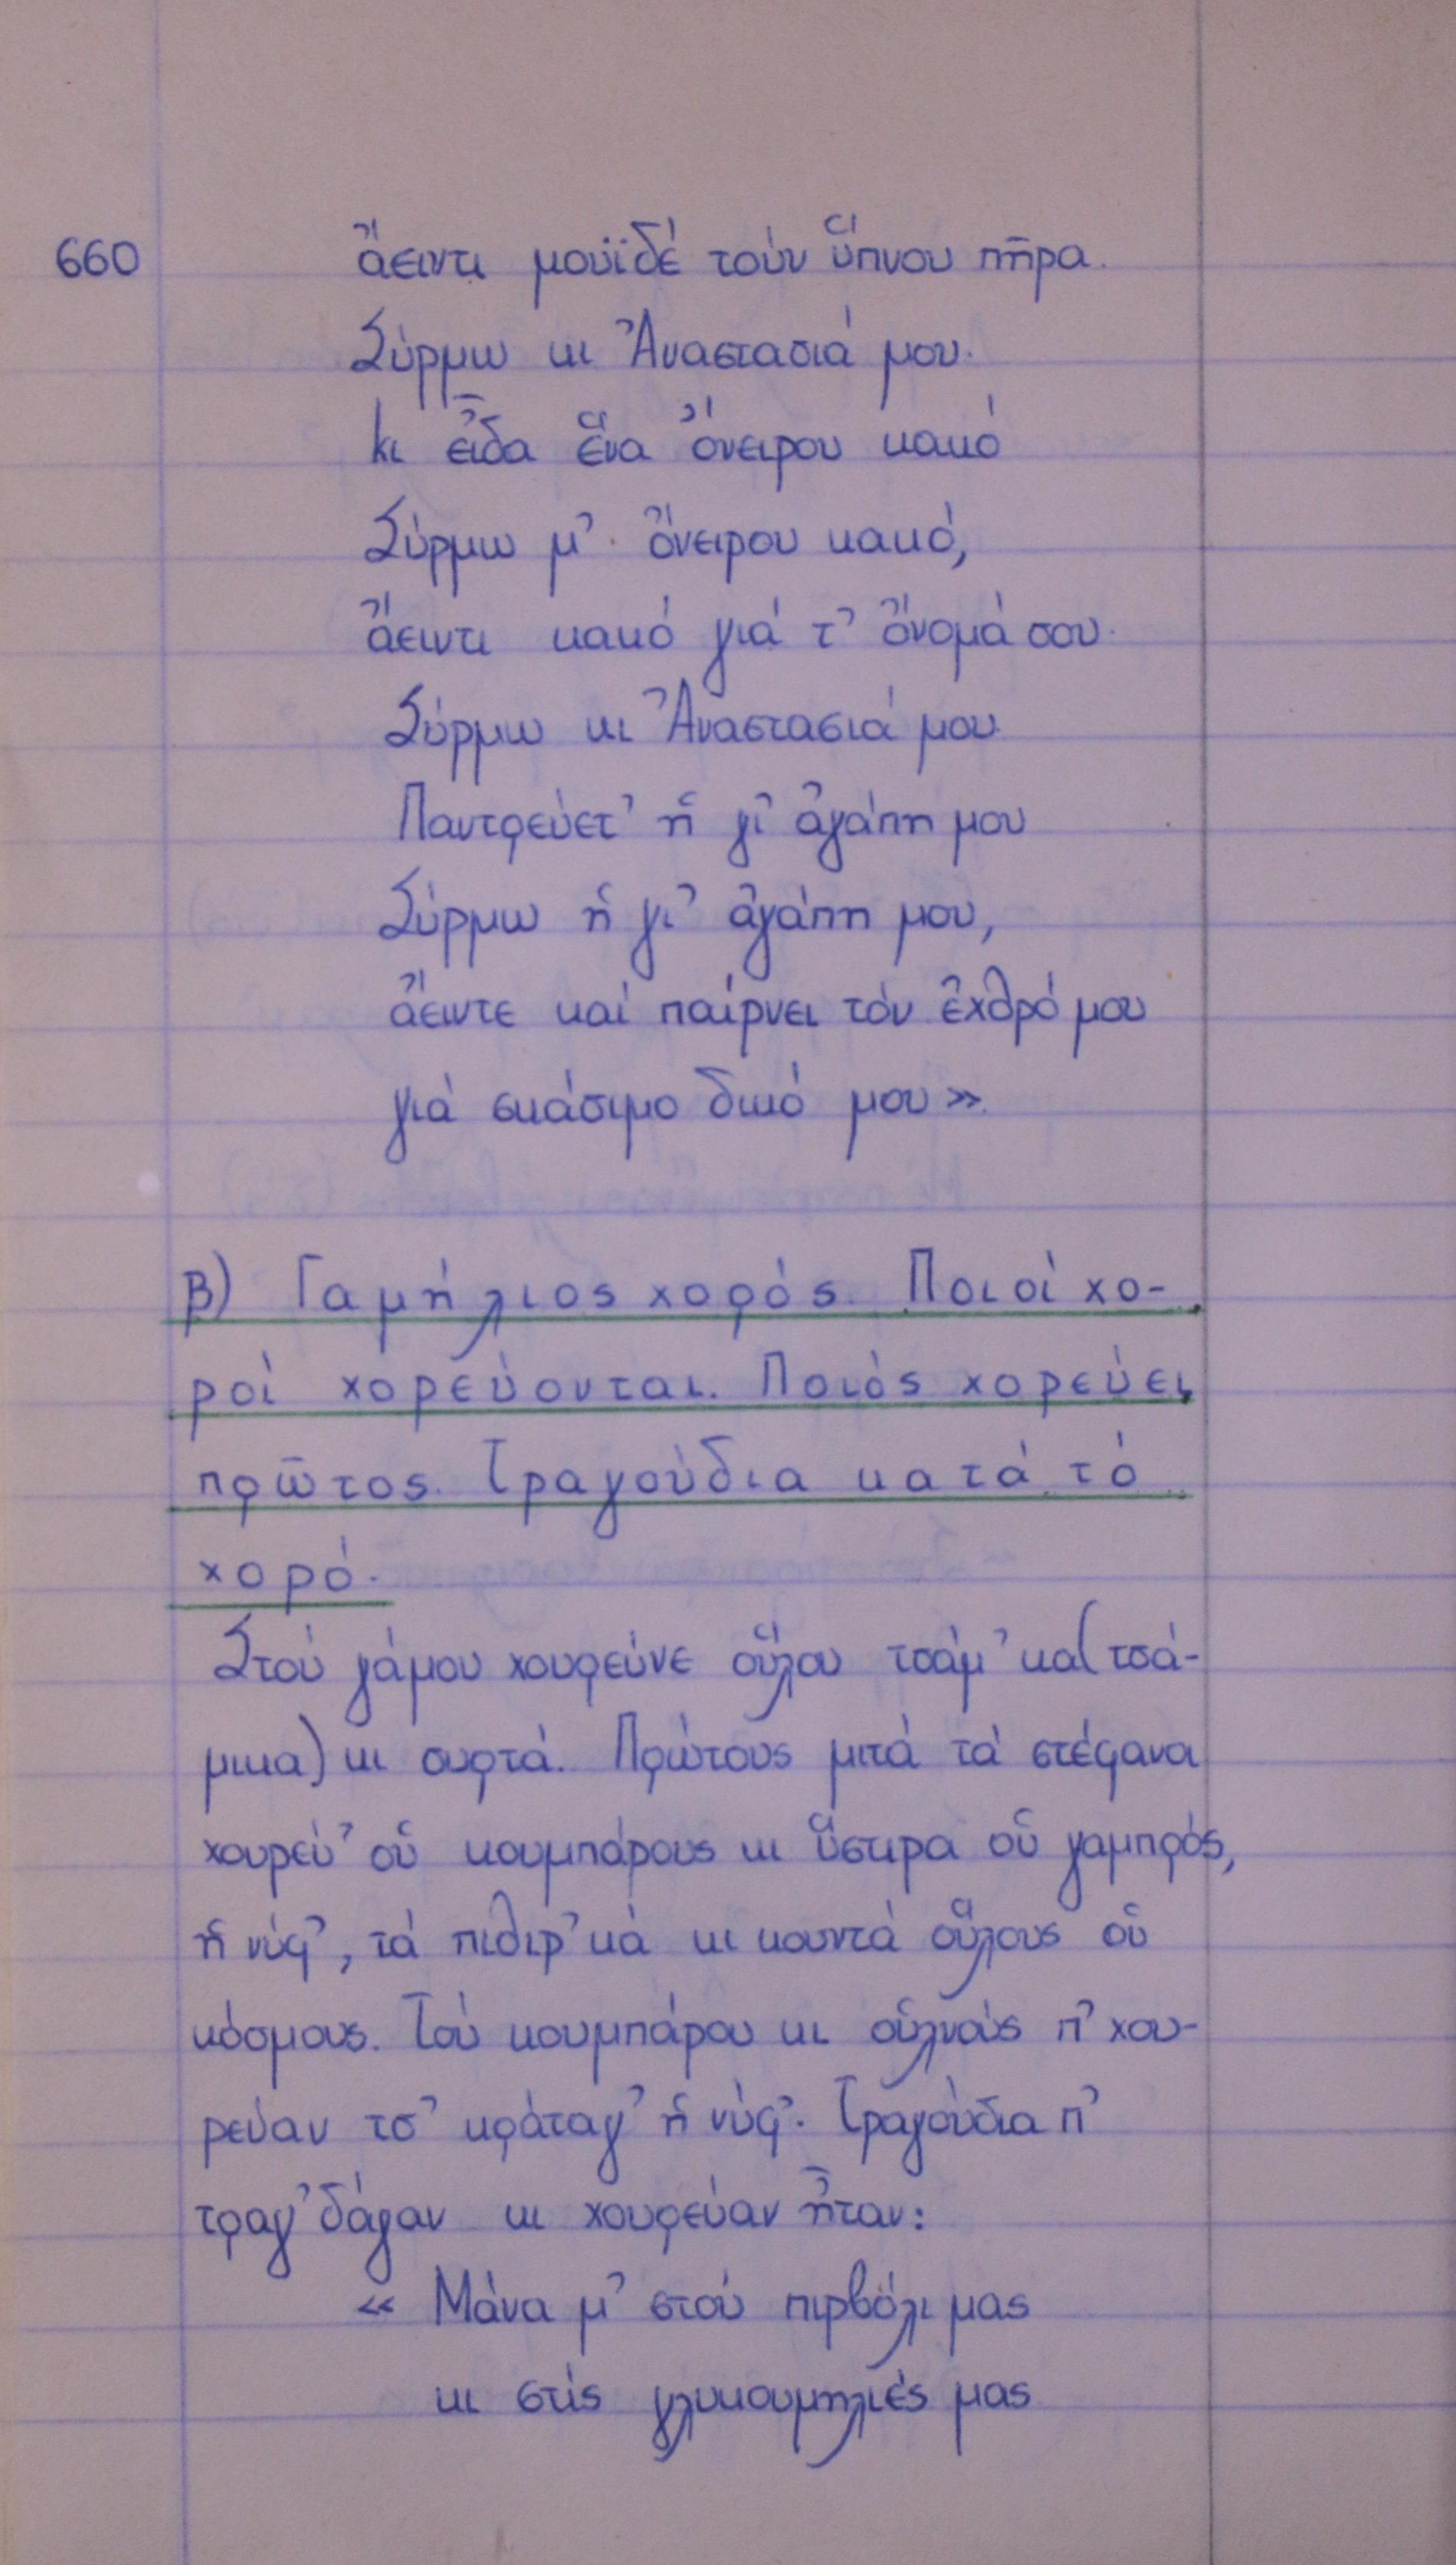 660
ἄειντι μουϊδέ τούν ὕπνου πῆρα.
Σύρμω κι Ἀναστασιά μου.
κι εἶδα ἕνα ὄνειρου κακό
Σύρμω μ' ὄνειρου κακό,
ἄειντι κακό γιά τ' ὄνομά σου.
Σύρμω κι Ἀναστασιά μου.
Παντρεύετ' ἡ γι' ἀγάπη μου
Σύρμω ἡ γι' ἀγάπη μου,
ἄειντε καί παίρνει τόν ἐχθρό μου
γιά σκάσιμο δικό μου».
β) Γαμήλιος χορός. Ποιοί χο-
ροί χορεύονται. Ποιός χορεύει
πρῶτος. Τραγούδια κατά τό
χορό.
Στού γάμου χουρεύνε οὕλου τσάμ'κα (τσά-
μικα) κι συρτά. Πρώτους μιτά τά στέφανα
χουρεύ' οὑ κουμπάρους κι ὕστιρα οὑ γαμπρός,
ἡ νύφ', τά πιθιρ'κά κι κουντά οὕλους οὑ
κόσμους. Τού κουμπάρου κι οὑλνούς π' χου-
ρεύαν τσ' κράταγ' ἡ νύφ'. Τραγούδια π'
τραγ'δάγαν κι χουρεύαν ἦταν:
« Μάνα μ' στού πιρβόλι μας
κι στίς γλυκουμηλιές μας